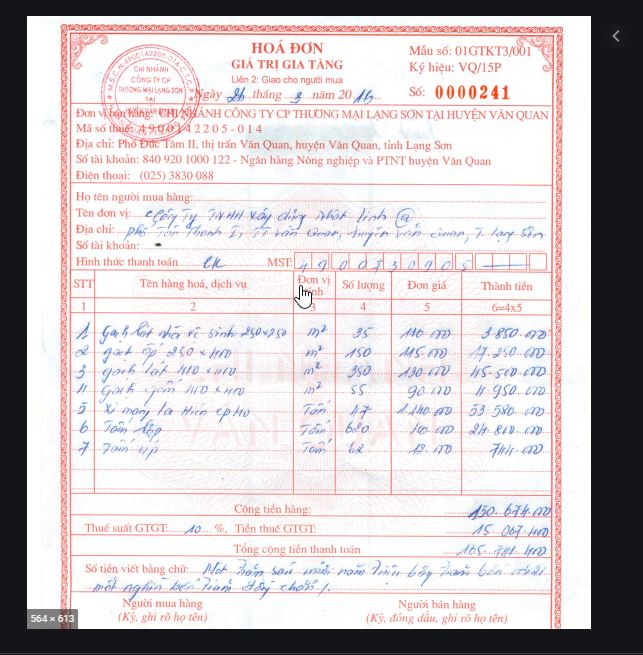 HOÁ ĐƠN
GIÁ TRỊ GIA TĂNG
Liên 2: Giao cho người mua
Ngày 26 tháng 3 năm 2016
Mẫu số: 01GTKT3/001
Ký hiệu: VQ/15P
Số: 0000241
CHI NHÁNH
CÔNG TY CP
THƯƠNG MẠI LẠNG SƠN
TẠI
HUYỆN VĂN QUAN
Đơn vị bán hàng: CHI NHÁNH CÔNG TY CP THƯƠNG MẠI LẠNG SƠN TẠI HUYỆN VĂN QUAN
Mã số thuế: 4900142205-014
Địa chỉ: Phố Đức Tâm II, thị trấn Văn Quan, huyện Văn Quan, tỉnh Lạng Sơn
Số tài khoản: 840 920 1000 122 - Ngân hàng Nông nghiệp và PTNT huyện Văn Quan
Điện thoại: (025) 3830 088
Họ tên người mua hàng:
Tên đơn vị: Công Ty TNHH Xây dựng Nhật Linh
Địa chỉ: phố Tân Thanh I, TT Văn Quan, huyện Văn Quan, T. Lạng Sơn
Số tài khoản:
Hình thức thanh toán CK MST: 4900730905
STT Tên hàng hoá, dịch vụ Đơn vị tính Số lượng Đơn giá Thành tiền
1 2 3 4 5 6=4x5
1 gạch lát nhà vệ sinh 250x250 m² 35 110.000 3.850.000
2 gạch ốp 250x400 m² 150 115.000 17.250.000
3 gạch lát 400x400 m² 350 130.000 45.500.000
4 gạch gốm 400x400 m² 55 90.000 4.950.000
5 Xi măng La Hiên CP40 Tấn 47 1.140.000 53.580.000
6 Tấm lợp Tấm 620 40.000 24.800.000
7 Tấm úp Tấm 62 12.000 744.000
Cộng tiền hàng: 150.674.000
Thuế suất GTGT: 10 %, Tiền thuế GTGT: 15.067.400
Tổng cộng tiền thanh toán 165.741.400
Số tiền viết bằng chữ: Một trăm sáu mươi năm triệu bảy trăm bốn mươi
mốt nghìn bốn trăm đồng chẵn /.
Người mua hàng Người bán hàng
(Ký, ghi rõ họ tên) (Ký, đóng dấu, ghi rõ họ tên)
564 × 613